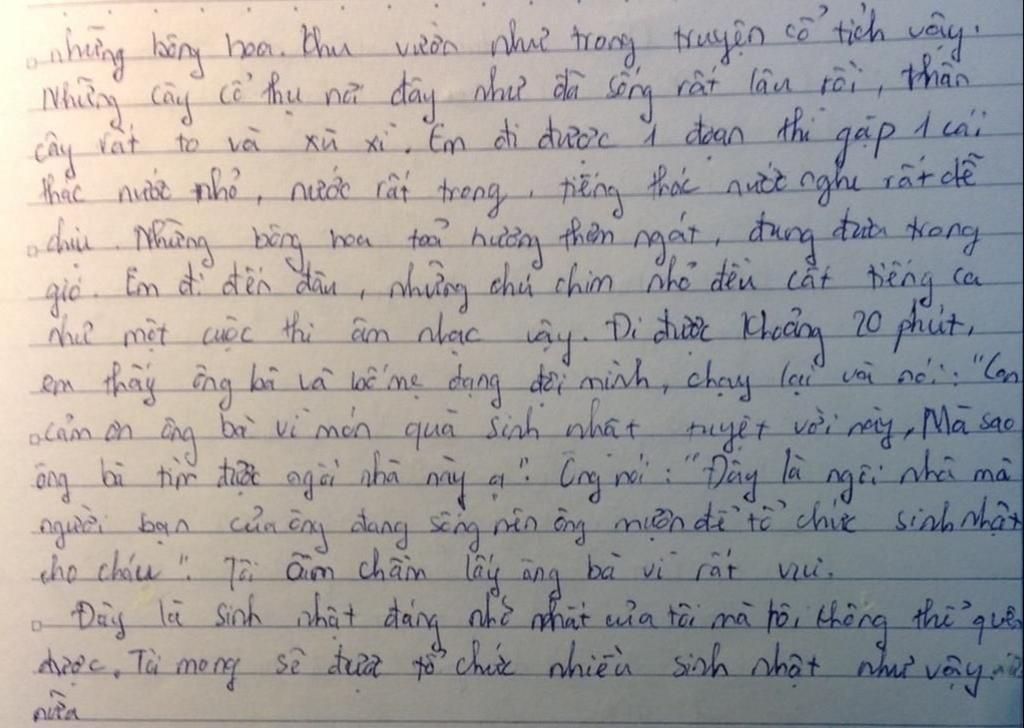 những bông hoa. Khu vườn như trong truyện cổ tích vậy.
Những cây cổ thụ nơi đây như đã sống rất lâu rồi, thân
cây rất to và xù xì. Em đi được 1 đoạn thì gặp 1 cái
thác nước nhỏ, nước rất trong, tiếng thác nước nghe rất dễ
chịu. Những bông hoa toả hương thơm ngát, đung đưa trong
gió. Em đi đến đâu, những chú chim nhỏ đều cất tiếng ca
như một cuộc thi âm nhạc vậy. Đi được khoảng 20 phút,
em thấy ông bà và bố mẹ đang đợi mình, chạy lại và nói: "Con
cảm ơn ông bà vì món quà sinh nhật tuyệt vời này, Mà sao
ông bà tìm được ngôi nhà này ạ". Ông nói: "Đây là ngôi nhà mà
người bạn của ông đang sống nên ông mượn để tổ chức sinh nhật
cho cháu". Tôi ôm chầm lấy ông bà vì rất vui.
Đây là sinh nhật đáng nhớ nhất của tôi mà tôi không thể quên
được. Tôi mong sẽ được tổ chức nhiều sinh nhật như vậy
nữa